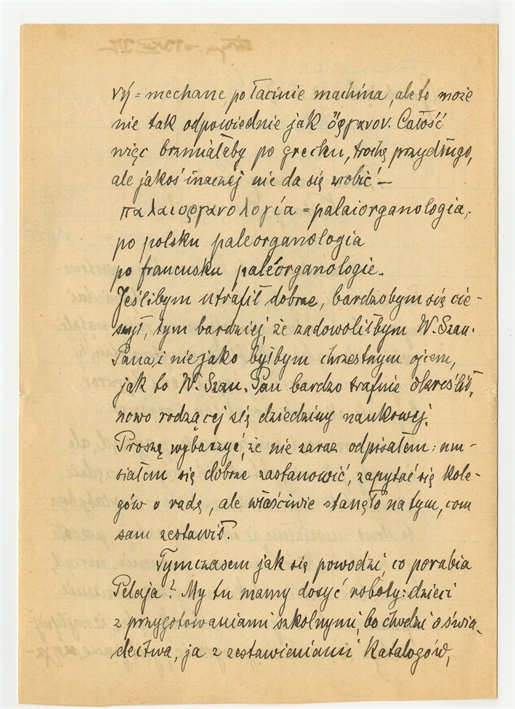 νή = mechane po łacinie machina, ale to może
nie tak odpowiednie jak ὄργανον. Całość
więc brzmiałaby po grecku, trochę przydługo,
ale jakoś inaczej nie da się zrobić –
παλαιοργανολογία = palaiorganologia,
po polsku paleorganologia
po francusku paléorganologie.
Jeślibym utrafił dobrze, bardzobym się cie-
szył, tym bardziej że zadowoliłbym W. Szan.
Pana, i niejako byłbym chrzestnym ojcem,
jak to W. Szan. Pan bardzo trafnie określił,
nowo rodzącej się dziedziny naukowej.
Proszę wybaczyć, że nie zaraz odpisałem: mu-
siałem się dobrze zastanowić, zapytać się kole-
gów o radę, ale właściwie stanęło na tym, com
sam zestawił.
Tymczasem jak się powodzi, co porabia
Pelaja? My tu mamy dosyć roboty: dzieci
z przygotowaniami szkolnymi, bo chodzi o świa-
dectwa, ja z zestawieniami katalogów,